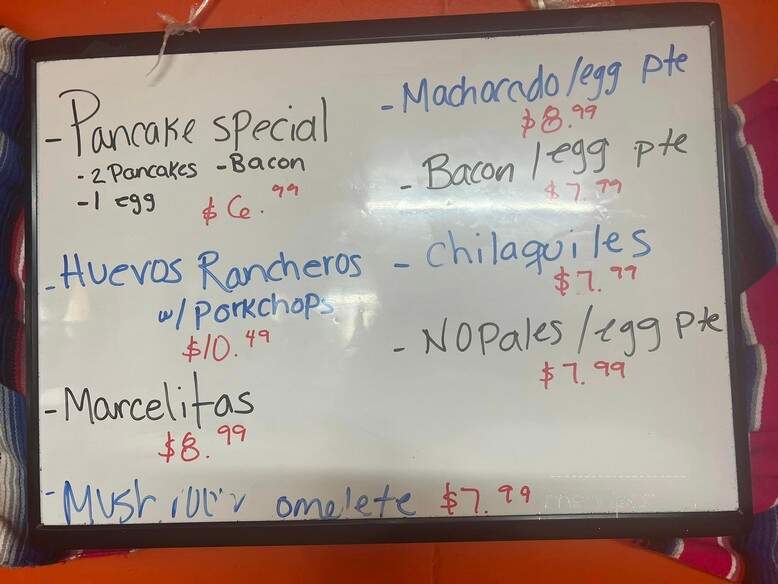 - Pancake special
- 2 Pancakes - Bacon
- 1 egg
$6.99
- Huevos Rancheros
w/ Porkchops
$10.49
- Marcelitas
$8.99
- omelete $7.99
- Machacado/egg pte
$8.99
- Bacon/egg pte
$7.99
- Chilaquiles
$7.99
- NOPales/egg pte
$7.99